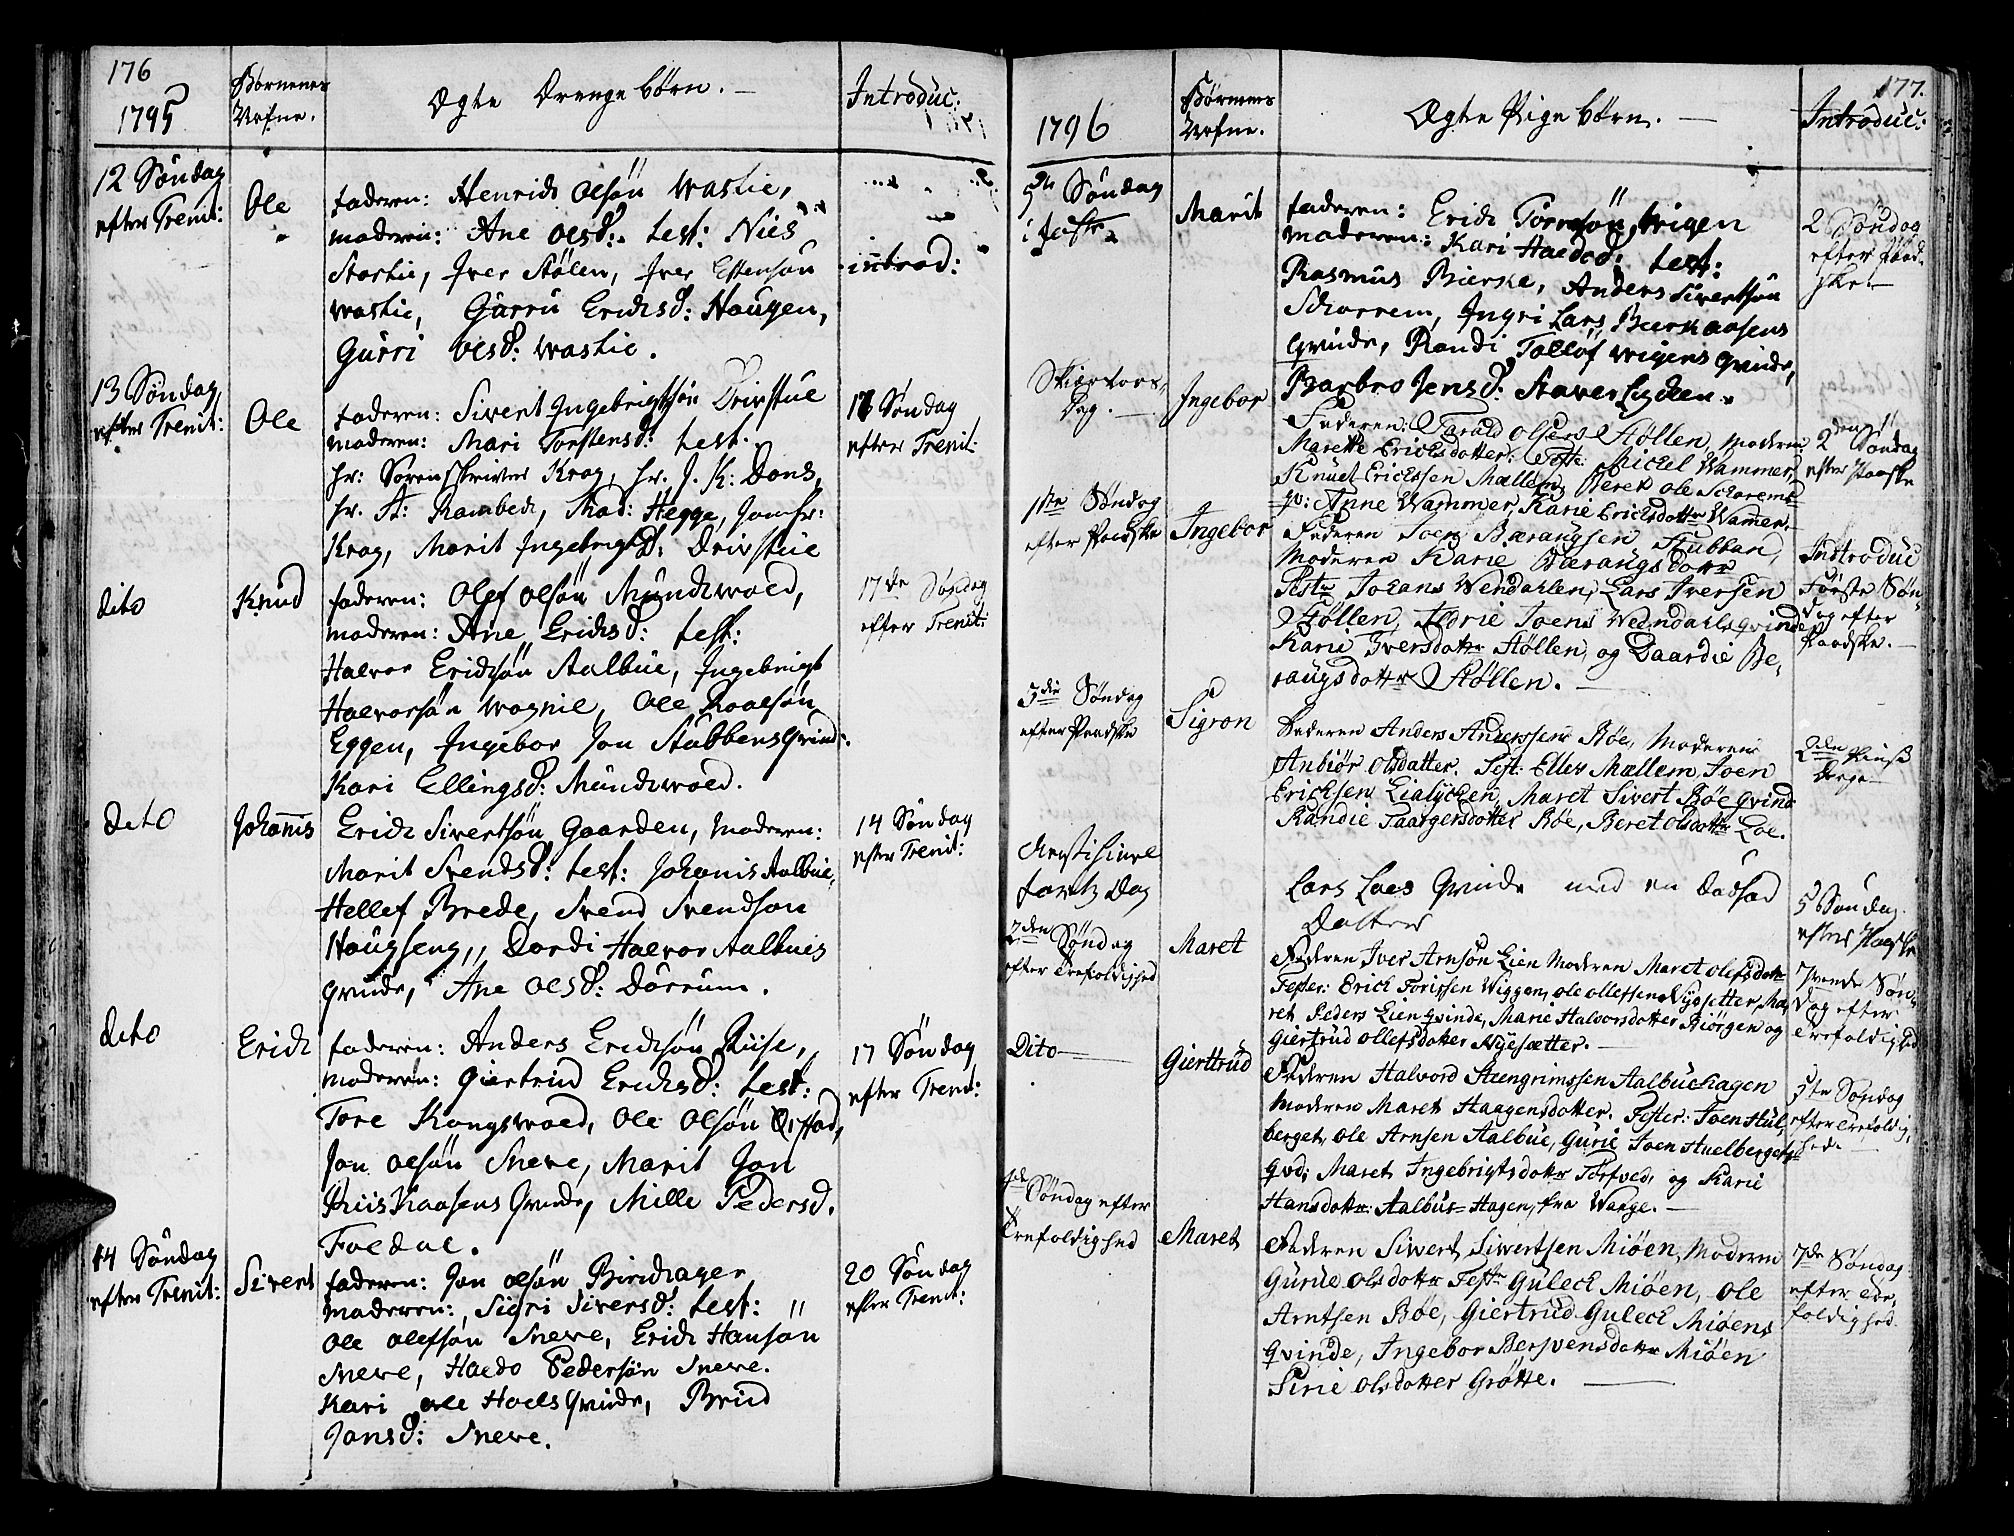 176
1795
Børnenes
Nafne.
Ægte Drenge børn. —
Introduc:
12 Søndag
efter Trenit:
Ole
faderen: Henrich Olsøn Wastie,
moderen: Ane Olsd: test: Niels
Stortie, Iver Stølen, Iver Estensøn
wastie, Gurru Erichsd: Hougen,
Gurri Olsd: wastie.
introd:
13 Søndag
efter Trenit:
Ole
faderen: Sivert Ingebrigtsøn Drivstue
moderen: Mari Torstensd: test.
hr: Sorenskriver Krog, hr. J. K: Dons,
hr. A: Rambech, Mad: Hegge, Jomfr:
Krog, Marit Ingebrigtsd: Drivstue
17 Søndag
efter Trenit:
dito
Knud
faderen: Olef Olsøn Mundwold,
moderen: Ane Erichsd: test:
Halvor Erichsøn Aalbue, Ingebrigt
Halvorsøn Wognil, Ole Roalsøn
Eggen, Ingebor Jon Stubbens Qvinde:
Kari Ellingsd: Mundwold.
17de Søndag
efter Trenit:
dito
Johannis
Erich Sivertsøn Gaarden, moderen:
Marit Svendsd: test: Johanis Aalbue,
Hellef Brede, Svend Svendson
Hougseng,, Dordi Halvor Aalbues
Qvinde, Ane Olsd: Dørrum.
14 Søndag
efter Trenit:
dito
Erich
faderen: Anders Erichsøn Riise,
moderen: Giertrud Erichsd: test:
Tore Kongswold, Ole Olsøn
Jon Olsøn Snewe, Marit Jon
Qvinde, Mille Pedersd.
Foldal.
17 Søndag
efter Trenit:
14 Søndag
efter Trenit:
Sivert
faderen: Jon Olsøn Birchager
moderen: Sigri Siversd: test:
Ole Olefsøn Snewe, Erich Hansøn
Snewe, Haldo Pedersøn Snewe.
Kari Ole Hoels Qvinde, Brud
Jonsd: Snewe.
20 Søndag
efter Trenit:
177.
1796
Børnenes
Nafne.
Ægte Pige børn. —
Introduc:
5te Søndag
i faste
Marit
faderen: Erich Toresøn Wigen
moderen: Kari Haldod: test:
Rasmus Bierke, Anders Sivertsøn
Schorrem, Ingri Lars Bierkaasens
Qvinde, Randi Tollof Wigens Qvinde,
Barbro Jensd: Staverlychen.
2 Søndag
efter Paad-
ske.
Skiertors-
Dag. —
Ingebor
Faderen: Harald Olsens Støllen, Moderen
Marette Erichsdotter. Teste: Michel Wammer,
Knuet Erichssen Mællem, Beret Ole Schorems
qv: Anne Wammer, Karie Ericksdottr Wamer.
2den Søndag
efter Paaske
1ste Søndag
efter Paaske
Ingebor
Faderen Joen Bæraugsen Stubban,
Moderen Karie Bæraugs dottr
Testr Johans Wendahlen, Lars Iversen
Støllen, Aldrie Joens Wendahls qvinde
Karie Iversdottr Støllen, og Daardie Be-
raugsdottr Støllen. —
Introduc
Første Søn-
dag efter
Paaske. —
5die Søndag
efter Paaske
Sigron
Faderen Anders Anderssen Bøe, Moderen
Anbiør Olsdatter. Test: Elles Mællem, Joen
Ericksen Lialycken, Maret Sivert Bøe Qvind
Randie Taargersdotter Bøe, Beret Olsdottr Loe.
2den Pinse
Dag
Christi himel
farts Dag
Lars Loes Qvinde med en dødfød
Datter
5 Søndag
efter Paaske
2den Søndag
efter Trefoldighed
Maret
Faderen Iver Arnsøn Lien Moderen Maret Olefsdott
Tester: Erich Torissen Wiggen, Ole Ollefsen Nyesetter, Ma-
ret Peders Lien qvinde, Marie Halvorsdotter Biørgen og
Giertrud Ollefsdotter Nyesætter. —
7vende Søn-
dag efter
Trefoldighed
Dito —
Gierttrud
Faderen Halvord Steengrimssen Aalbuehagen
Moderen Maret Haagensdotter. Tester: Joen Hul-
berget, Ole Arnsen Aalbue, Gurie Joen Huelbergets
Qvd: Maret Ingebrigtsdottr Torfved, og Karie
Hansdottr: Aalbue-Hagen, fra Wange. —
5te Søndag
efter Trefoldig-
hed. —
4de Søndag efter
Trefoldighed
Maret
Faderen Sivert Sivertsen Miøen, Moderen
Gurue Olsdottr Testr Guleck Miøen, Ole
Arntsen Bøe, Giertrud Guleck Miøens
Qvinde, Ingebor Bersvensdottr Miøen
Sirie Olsdotter Grøtte. —
7de Søndag
efter Tre-
foldighed.